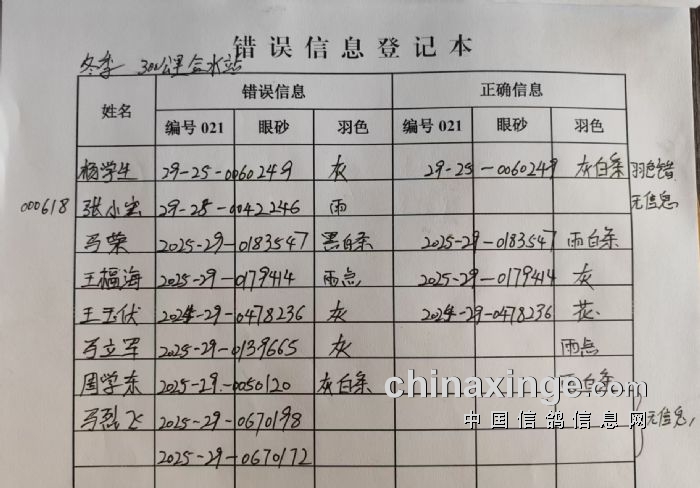 错误信息登记本
冬季 300公里合水站
姓名 错误信息 正确信息
编号 021 眼砂 羽色 编号 021 眼砂 羽色
杨学生 29-25-0060249 灰 29-25-0060249 灰白条 羽色错
000618 张小宝 29-25-0042246 雨 无信息
马荣 2025-29-0183547 黑白条 2025-29-0183547 雨白条
王福海 2025-29-0179414 雨点 2025-29-0179414 灰
王玉伏 2024-29-0478236 灰 2024-29-0478236 花
马立军 2025-29-0139665 灰 雨点
周学东 2025-29-0050120 灰白条 雨白条
马烈飞 2025-29-0670198 无信息
2025-29-0670172
chinaxinge.com
中国信鸽信息网